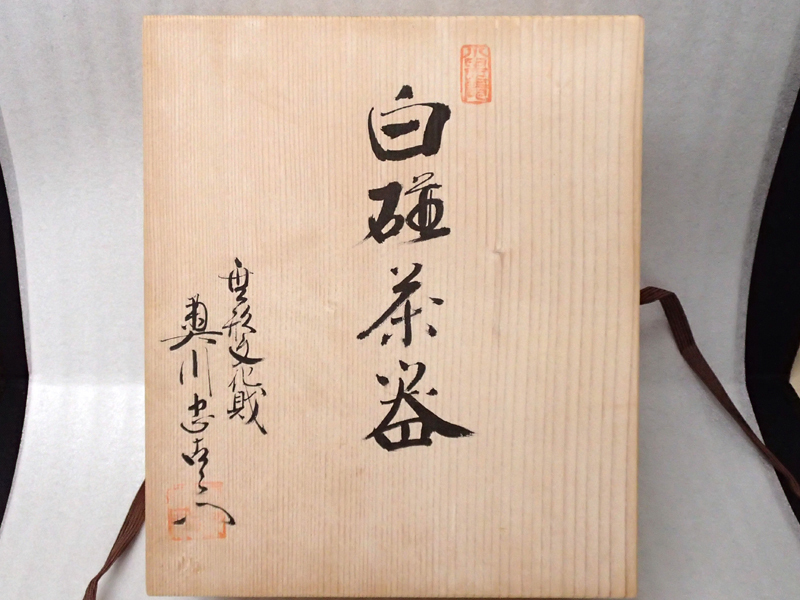 白磁茶器
無形文化財
奥川忠右エ門